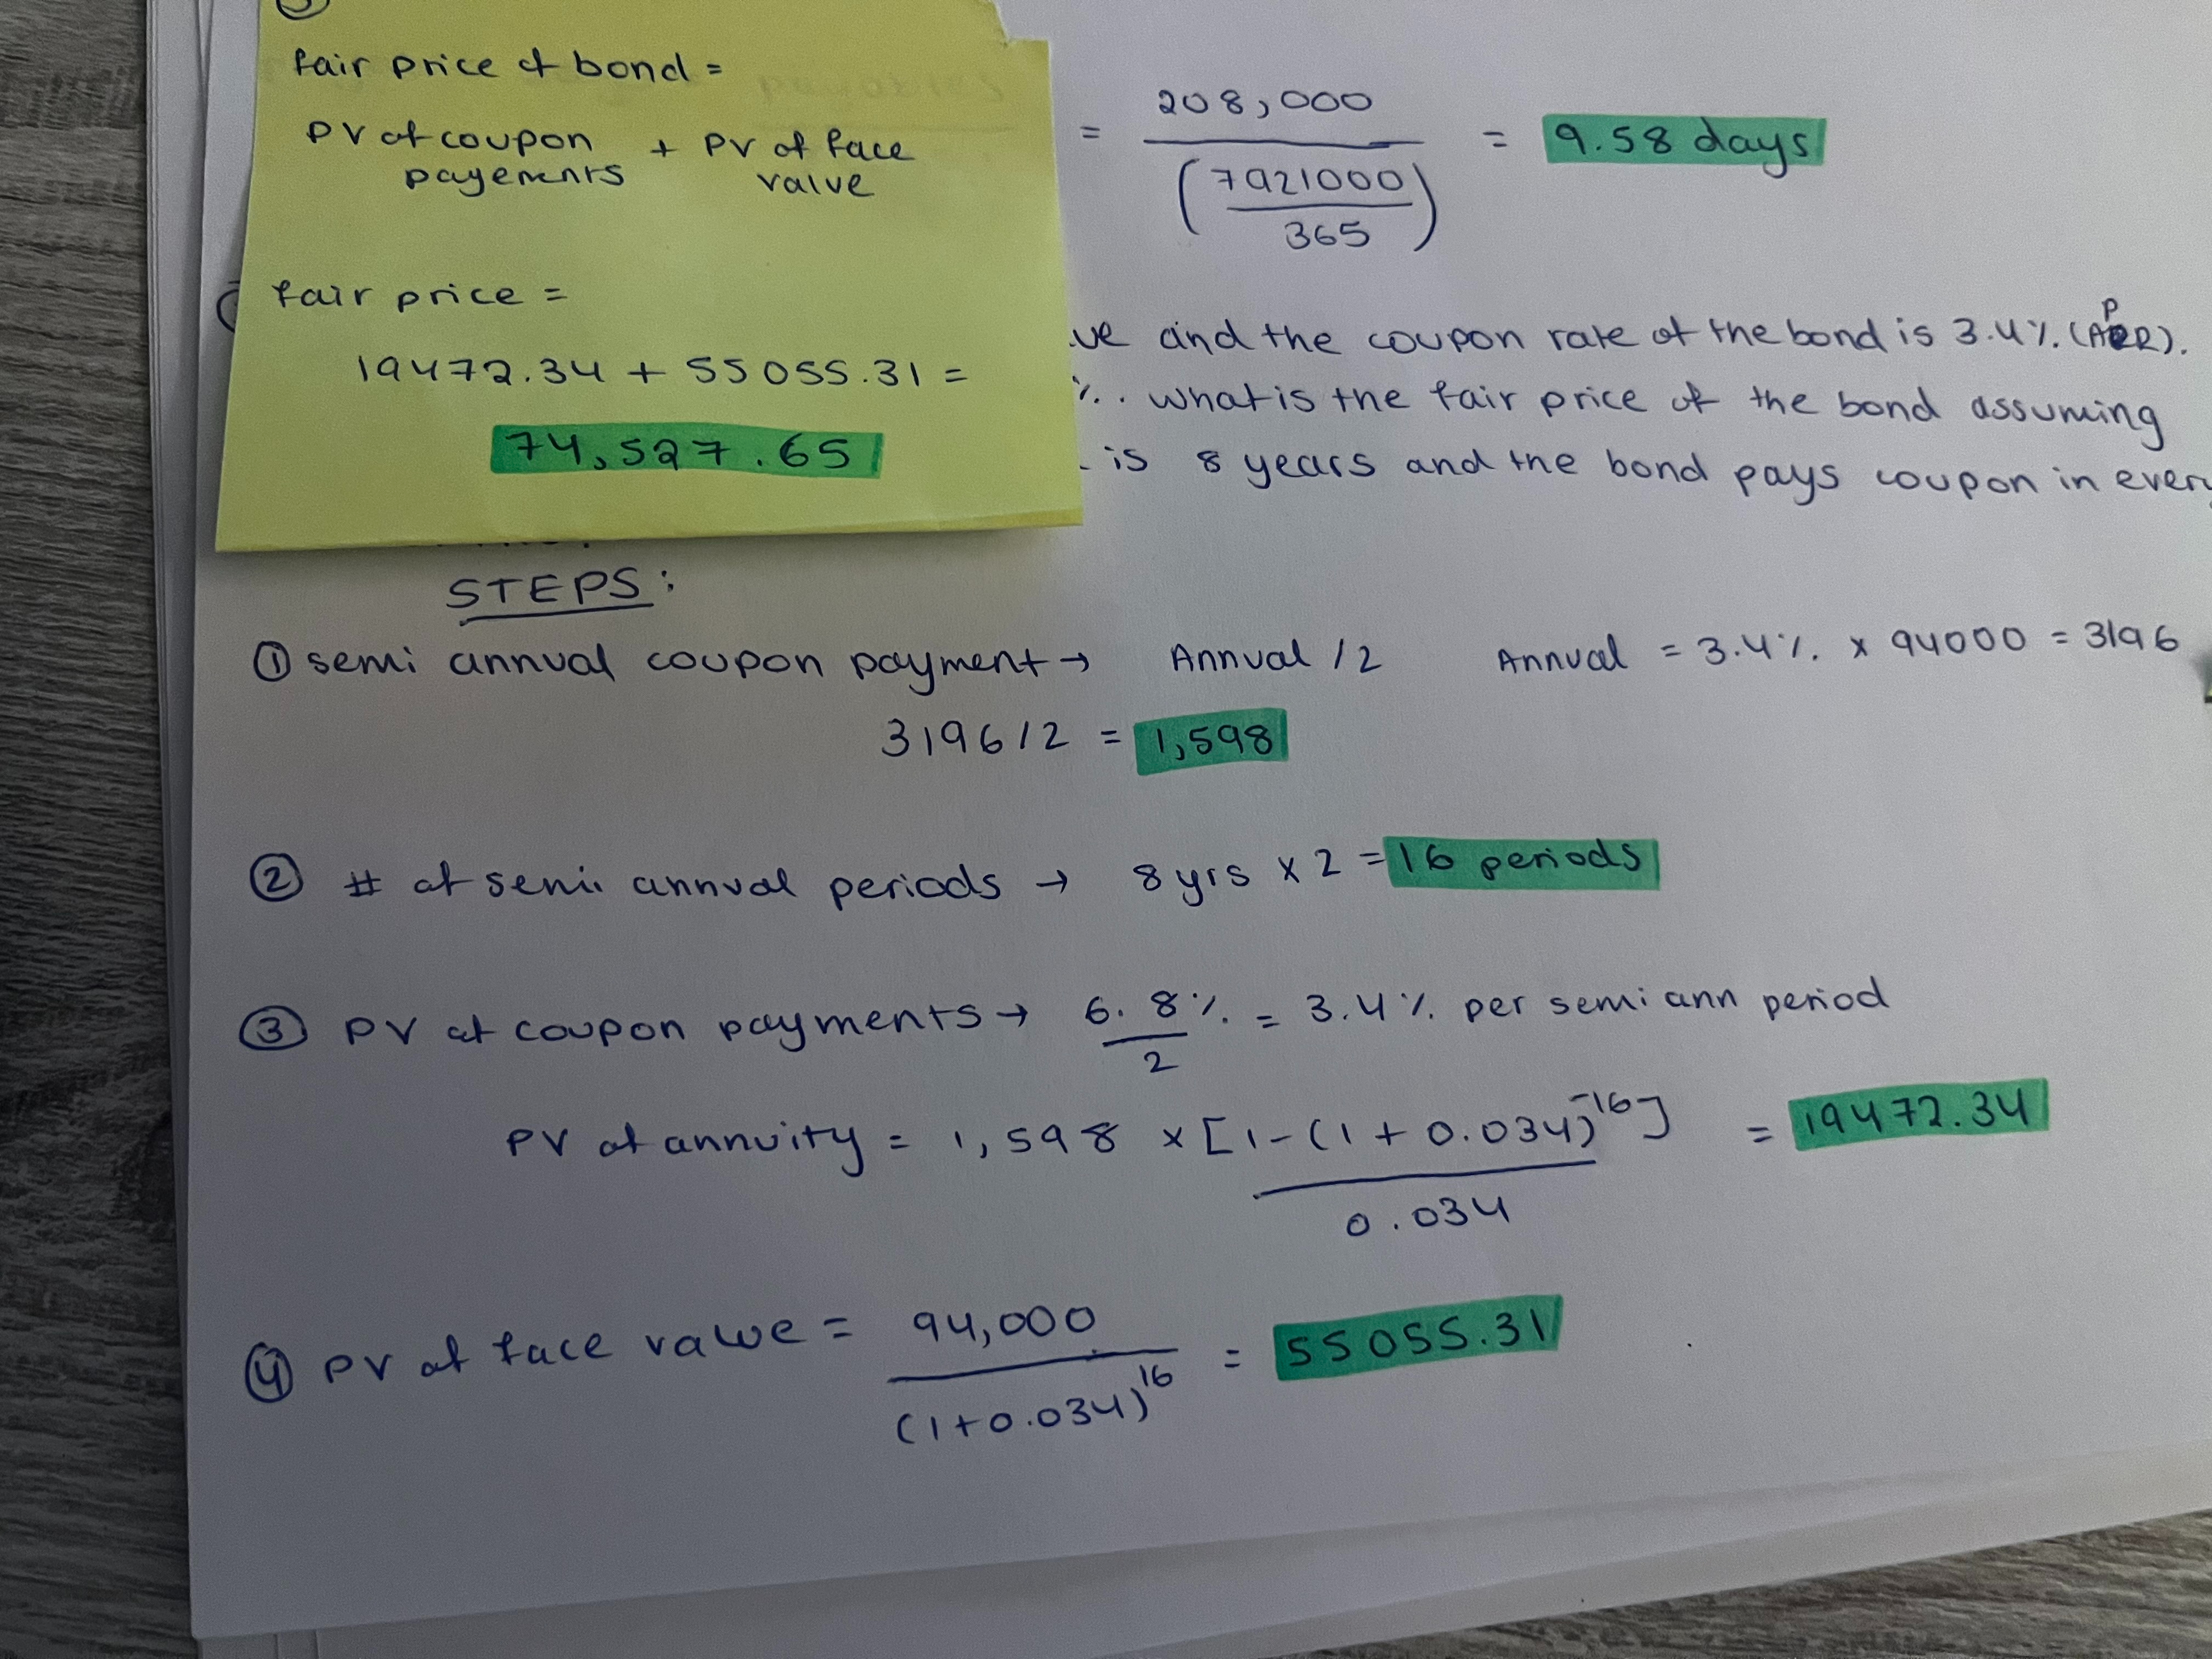 fair price of bond =
PV of coupon + PV of face
payements value
fair price =
19472.34 + 55055.31 =
74,527.65
= 208,000 = 9.58 days
(7921000
365)
ue and the coupon rate of the bond is 3.4%. (APR).
%. what is the fair price of the bond assuming
is 8 years and the bond pays coupon in every
STEPS:
① semi annual coupon payment → Annual /2 Annual = 3.4% x 94000 = 3196
3196/2 = 1,598
② # of semi annual periods → 8 yrs x 2 = 16 periods
③ PV of coupon payments → 6.8% = 3.4% per semi ann period
2
PV of annuity = 1,598 x [1-(1+0.034)^-16] = 19472.34
0.034
④ PV of face value = 94,000 = 55055.31
(1+0.034)^16